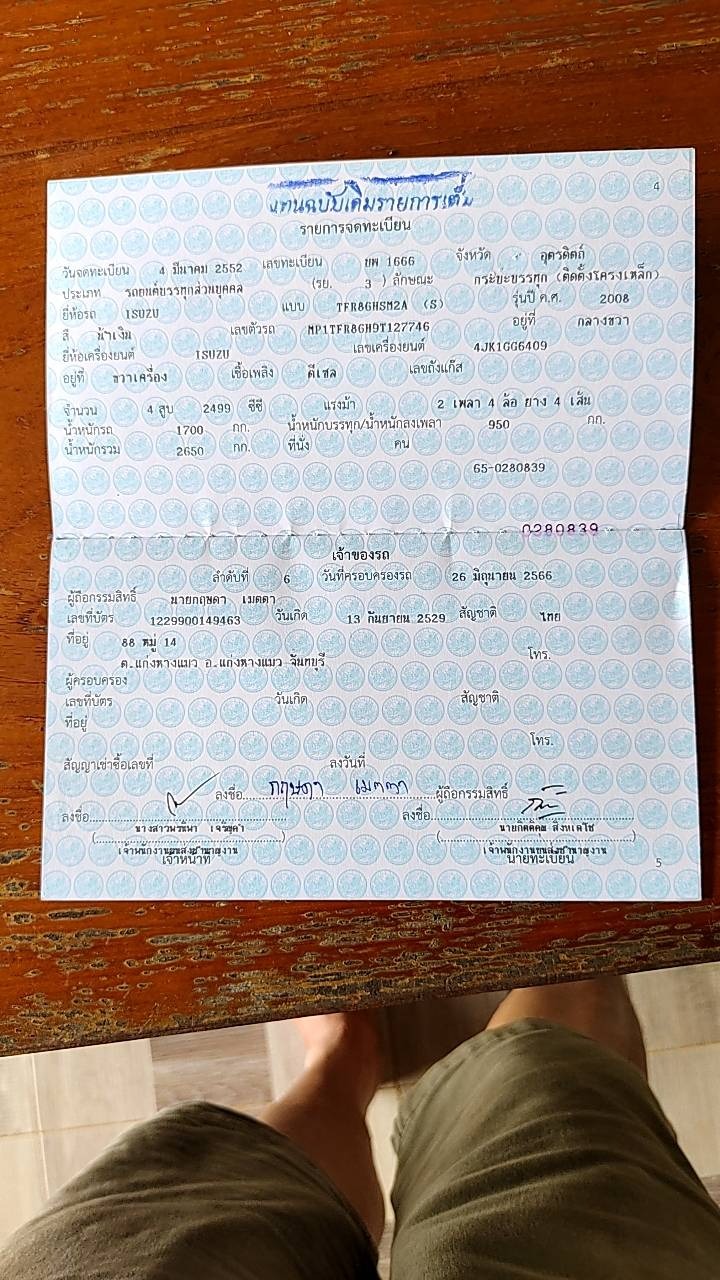 แทนฉบับเดิมรายการเต็ม
4
รายการจดทะเบียน
วันจดทะเบียน 4 มีนาคม 2552 เลขทะเบียน ยพ 1666 จังหวัด อุตรดิตถ์
ประเภท รถยนต์บรรทุกส่วนบุคคล (รย. 3 ) ลักษณะ กระบะบรรทุก (ติดตั้งโครงเหล็ก)
ยี่ห้อรถ ISUZU แบบ TFR86HSM2A (S) รุ่นปี ค.ศ. 2008
สี น้ำเงิน เลขตัวรถ MP1TFR86H9T127746 อยู่ที่ กลางขวา
ยี่ห้อเครื่องยนต์ ISUZU เลขเครื่องยนต์ 4JK1GG6409
อยู่ที่ ขวาเครื่อง เชื้อเพลิง ดีเซล เลขถังแก๊ส
จำนวน 4 สูบ 2499 ซีซี แรงม้า 2 เพลา 4 ล้อ ยาง 4 เส้น
น้ำหนักรถ 1700 กก. น้ำหนักบรรทุก/น้ำหนักลงเพลา 950 กก.
น้ำหนักรวม 2650 กก. ที่นั่ง คน
65-0280839
0280839
เจ้าของรถ
ลำดับที่ 6 วันที่ครอบครองรถ 26 มิถุนายน 2566
ผู้ถือกรรมสิทธิ์ นายกฤษดา เมตตา
เลขที่บัตร 1229900149463 วันเกิด 13 กันยายน 2529 สัญชาติ ไทย
ที่อยู่ 88 หมู่ 14
ต.แก่งหางแมว อ.แก่งหางแมว จันทบุรี โทร.
ผู้ครอบครอง
เลขที่บัตร วันเกิด สัญชาติ
ที่อยู่
โทร.
สัญญาเช่าซื้อเลขที่ ลงวันที่
ลงชื่อ กฤษดา เมตตา ผู้ถือกรรมสิทธิ์
ลงชื่อ ลงชื่อ
เจ้าพนักงานขนส่งชำนาญงาน เจ้าพนักงานขนส่งชำนาญงาน
เจ้าหน้าที่ นายทะเบียน
5